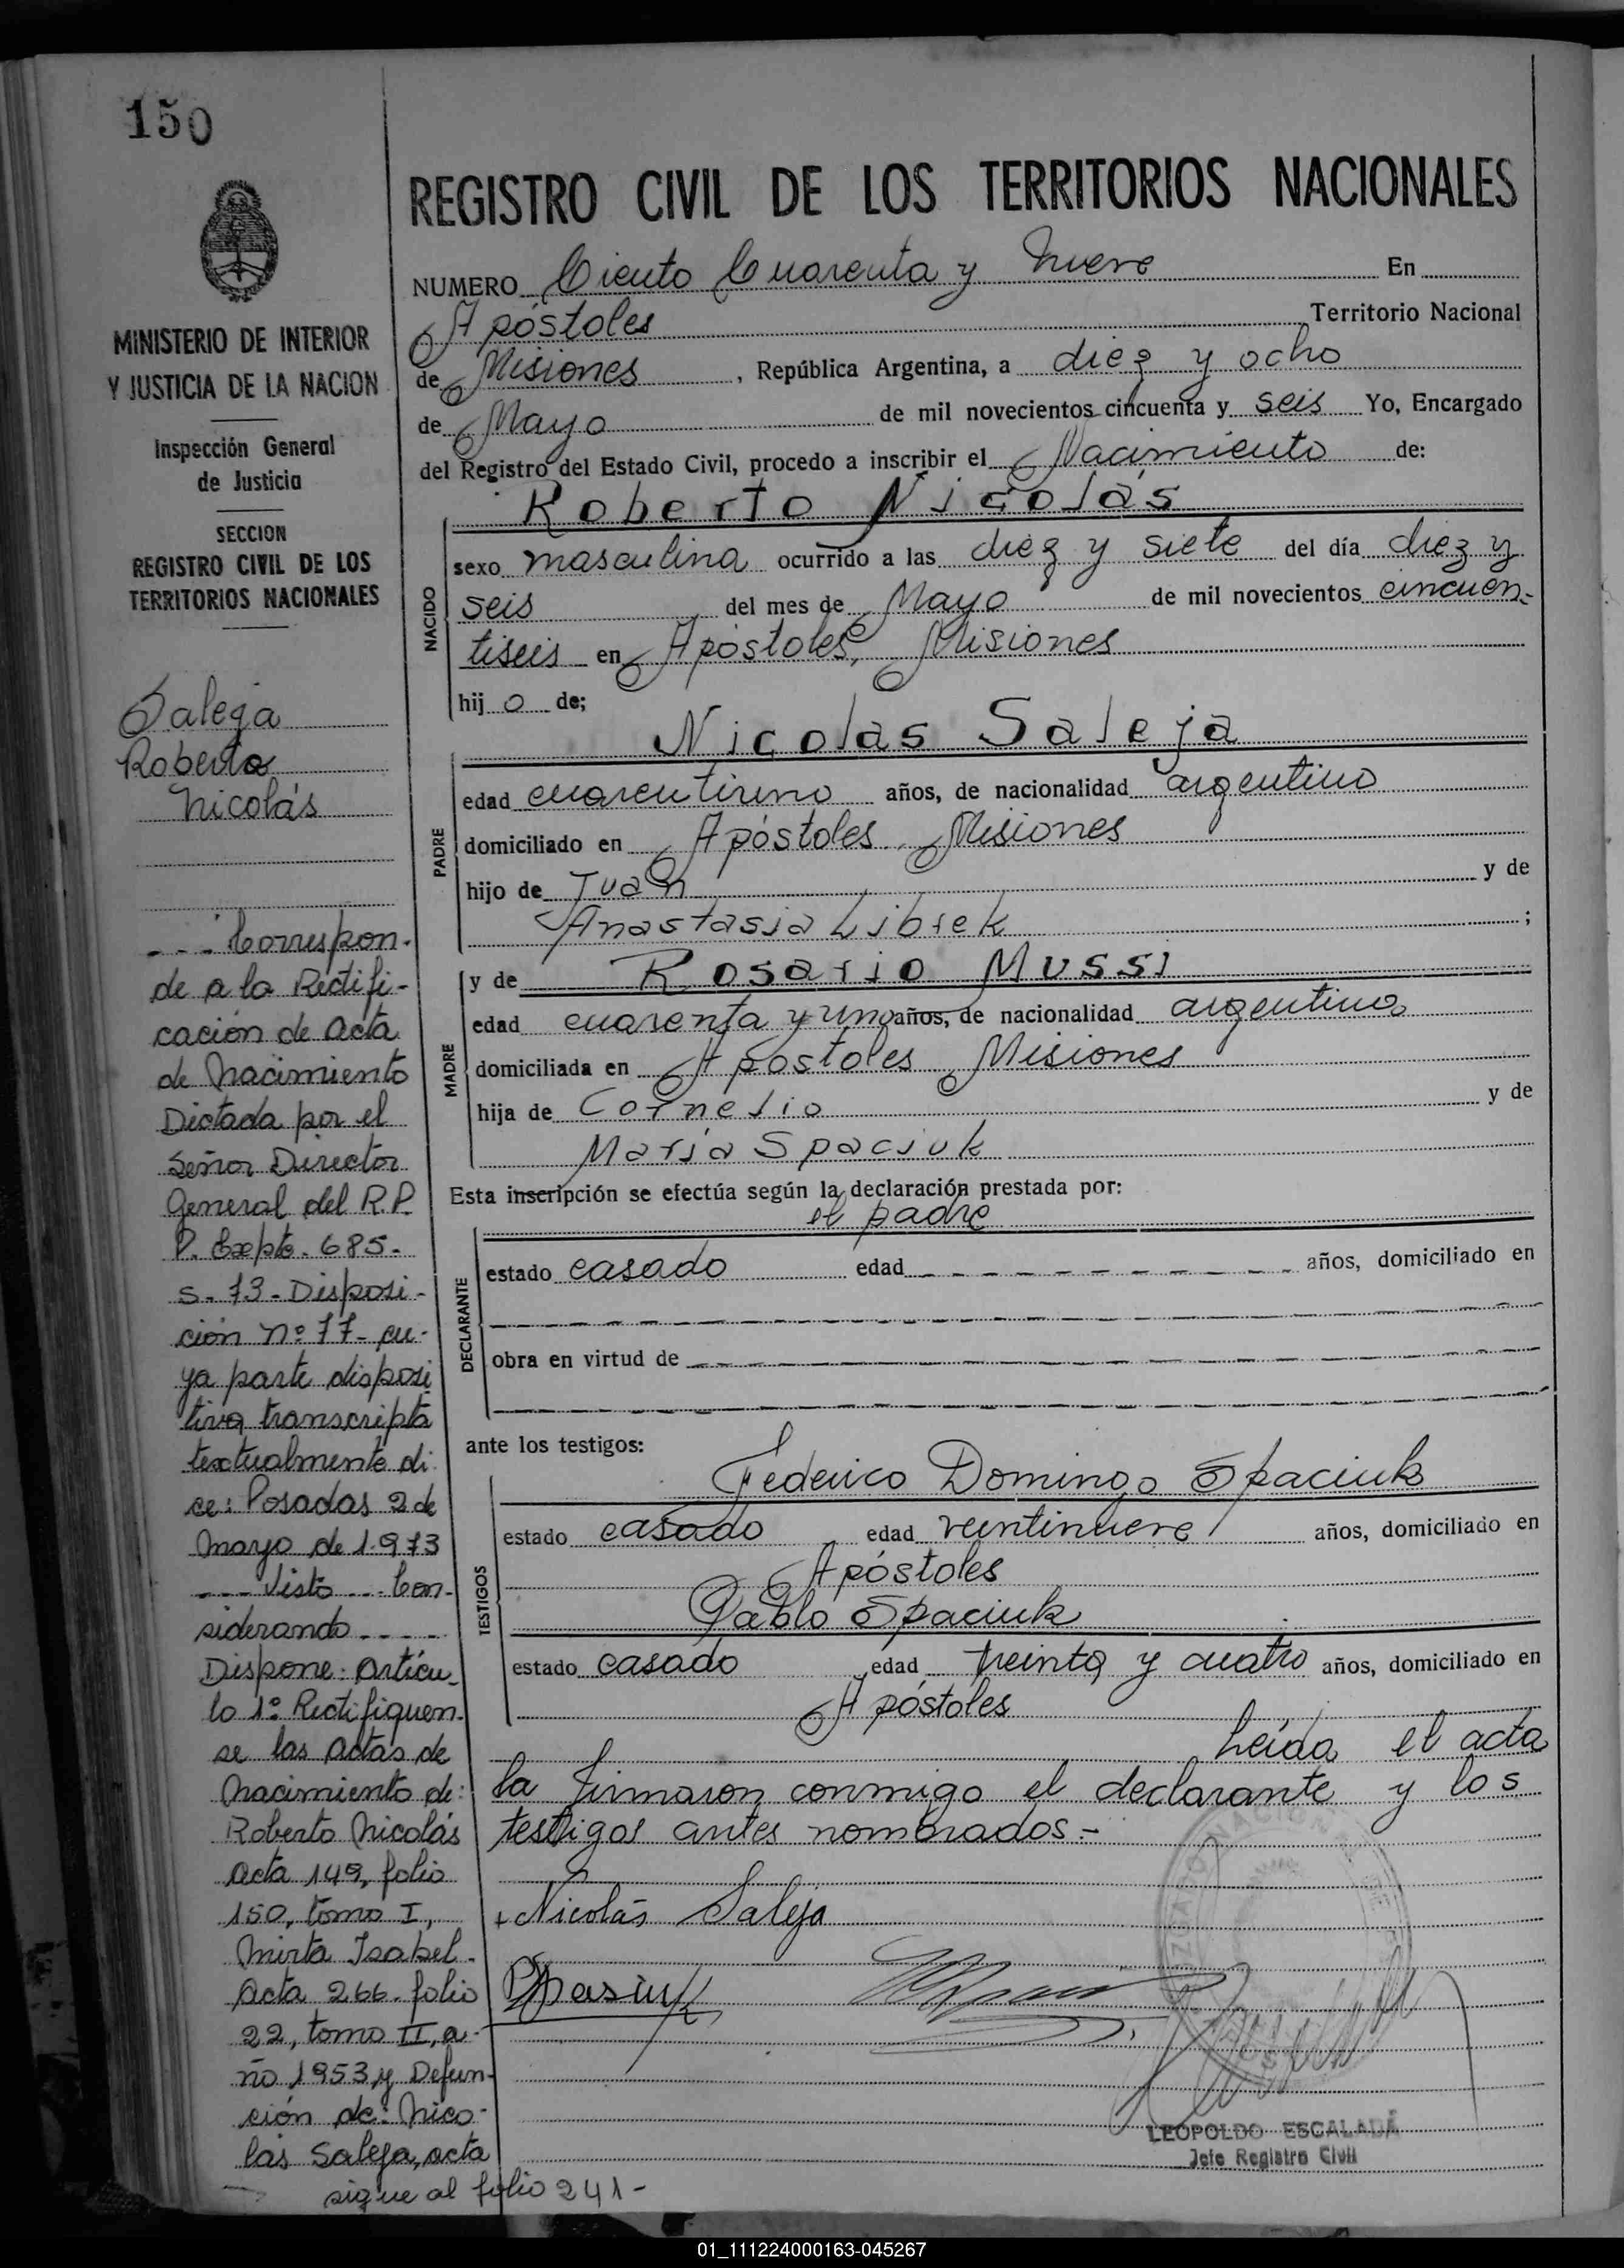 150
MINISTERIO DE INTERIOR
Y JUSTICIA DE LA NACION
Inspección General
de Justicia
SECCION
REGISTRO CIVIL DE LOS
TERRITORIOS NACIONALES
Saleja
Roberto
Nicolás
--- Correspon-
de a la Rectifi-
cación de acta
de Nacimiento
Dictada por el
Señor Director
General del R.P.
P. Expte. 685-
S-73- Disposi-
ción nº 77- cu-
ya parte disposi
tiva transcripta
textualmente di-
ce: Posadas 2 de
Mayo de 1.973
--- Visto --- Con-
siderando ----
Dispone: Artícu-
lo 1º Rectifíquen-
se las actas de
Nacimiento de:
Roberto Nicolás
acta 149, folio
150, tomo I,
Mirta Isabel-
acta 266- folio
22, tomo II, a-
ño 1953 y Defun-
ción de: Nico-
lás Saleja, acta
sigue al folio 241-
REGISTRO CIVIL DE LOS TERRITORIOS NACIONALES
NUMERO Ciento Cuarenta y Nueve En
Apóstoles Territorio Nacional
de Misiones, República Argentina, a diez y ocho
de Mayo de mil novecientos cincuenta y seis Yo, Encargado
del Registro del Estado Civil, procedo a inscribir el Nacimiento de:
Roberto Nicolás
NACIDO
sexo masculina ocurrido a las diez y siete del día diez y
seis del mes de Mayo de mil novecientos cincuen-
tiseis en Apóstoles, Misiones
hijo de;
Nicolas Saleja
PADRE
edad cuarentiuno años, de nacionalidad argentino
domiciliado en Apóstoles, Misiones
hijo de Juan y de
Anastasia Libiek;
MADRE
y de Rosario Mussi
edad cuarenta y uno años, de nacionalidad argentina
domiciliada en Apóstoles, Misiones
hija de Cornelio y de
María Spaciuk
Esta inscripción se efectúa según la declaración prestada por:
el padre
DECLARANTE
estado casado edad ---------- años, domiciliado en
obra en virtud de
ante los testigos:
TESTIGOS
Federico Domingo Spaciuk
estado casado edad veintinueve años, domiciliado en
Apóstoles
Pablo Spaciuk
estado casado edad treinta y cuatro años, domiciliado en
Apóstoles
Leída el acta
la firmaron conmigo el declarante y los
testigos antes nombrados.-
+ Nicolás Saleja
LEOPOLDO ESCALADA
Jefe Registro Civil
01_111224000163-045267